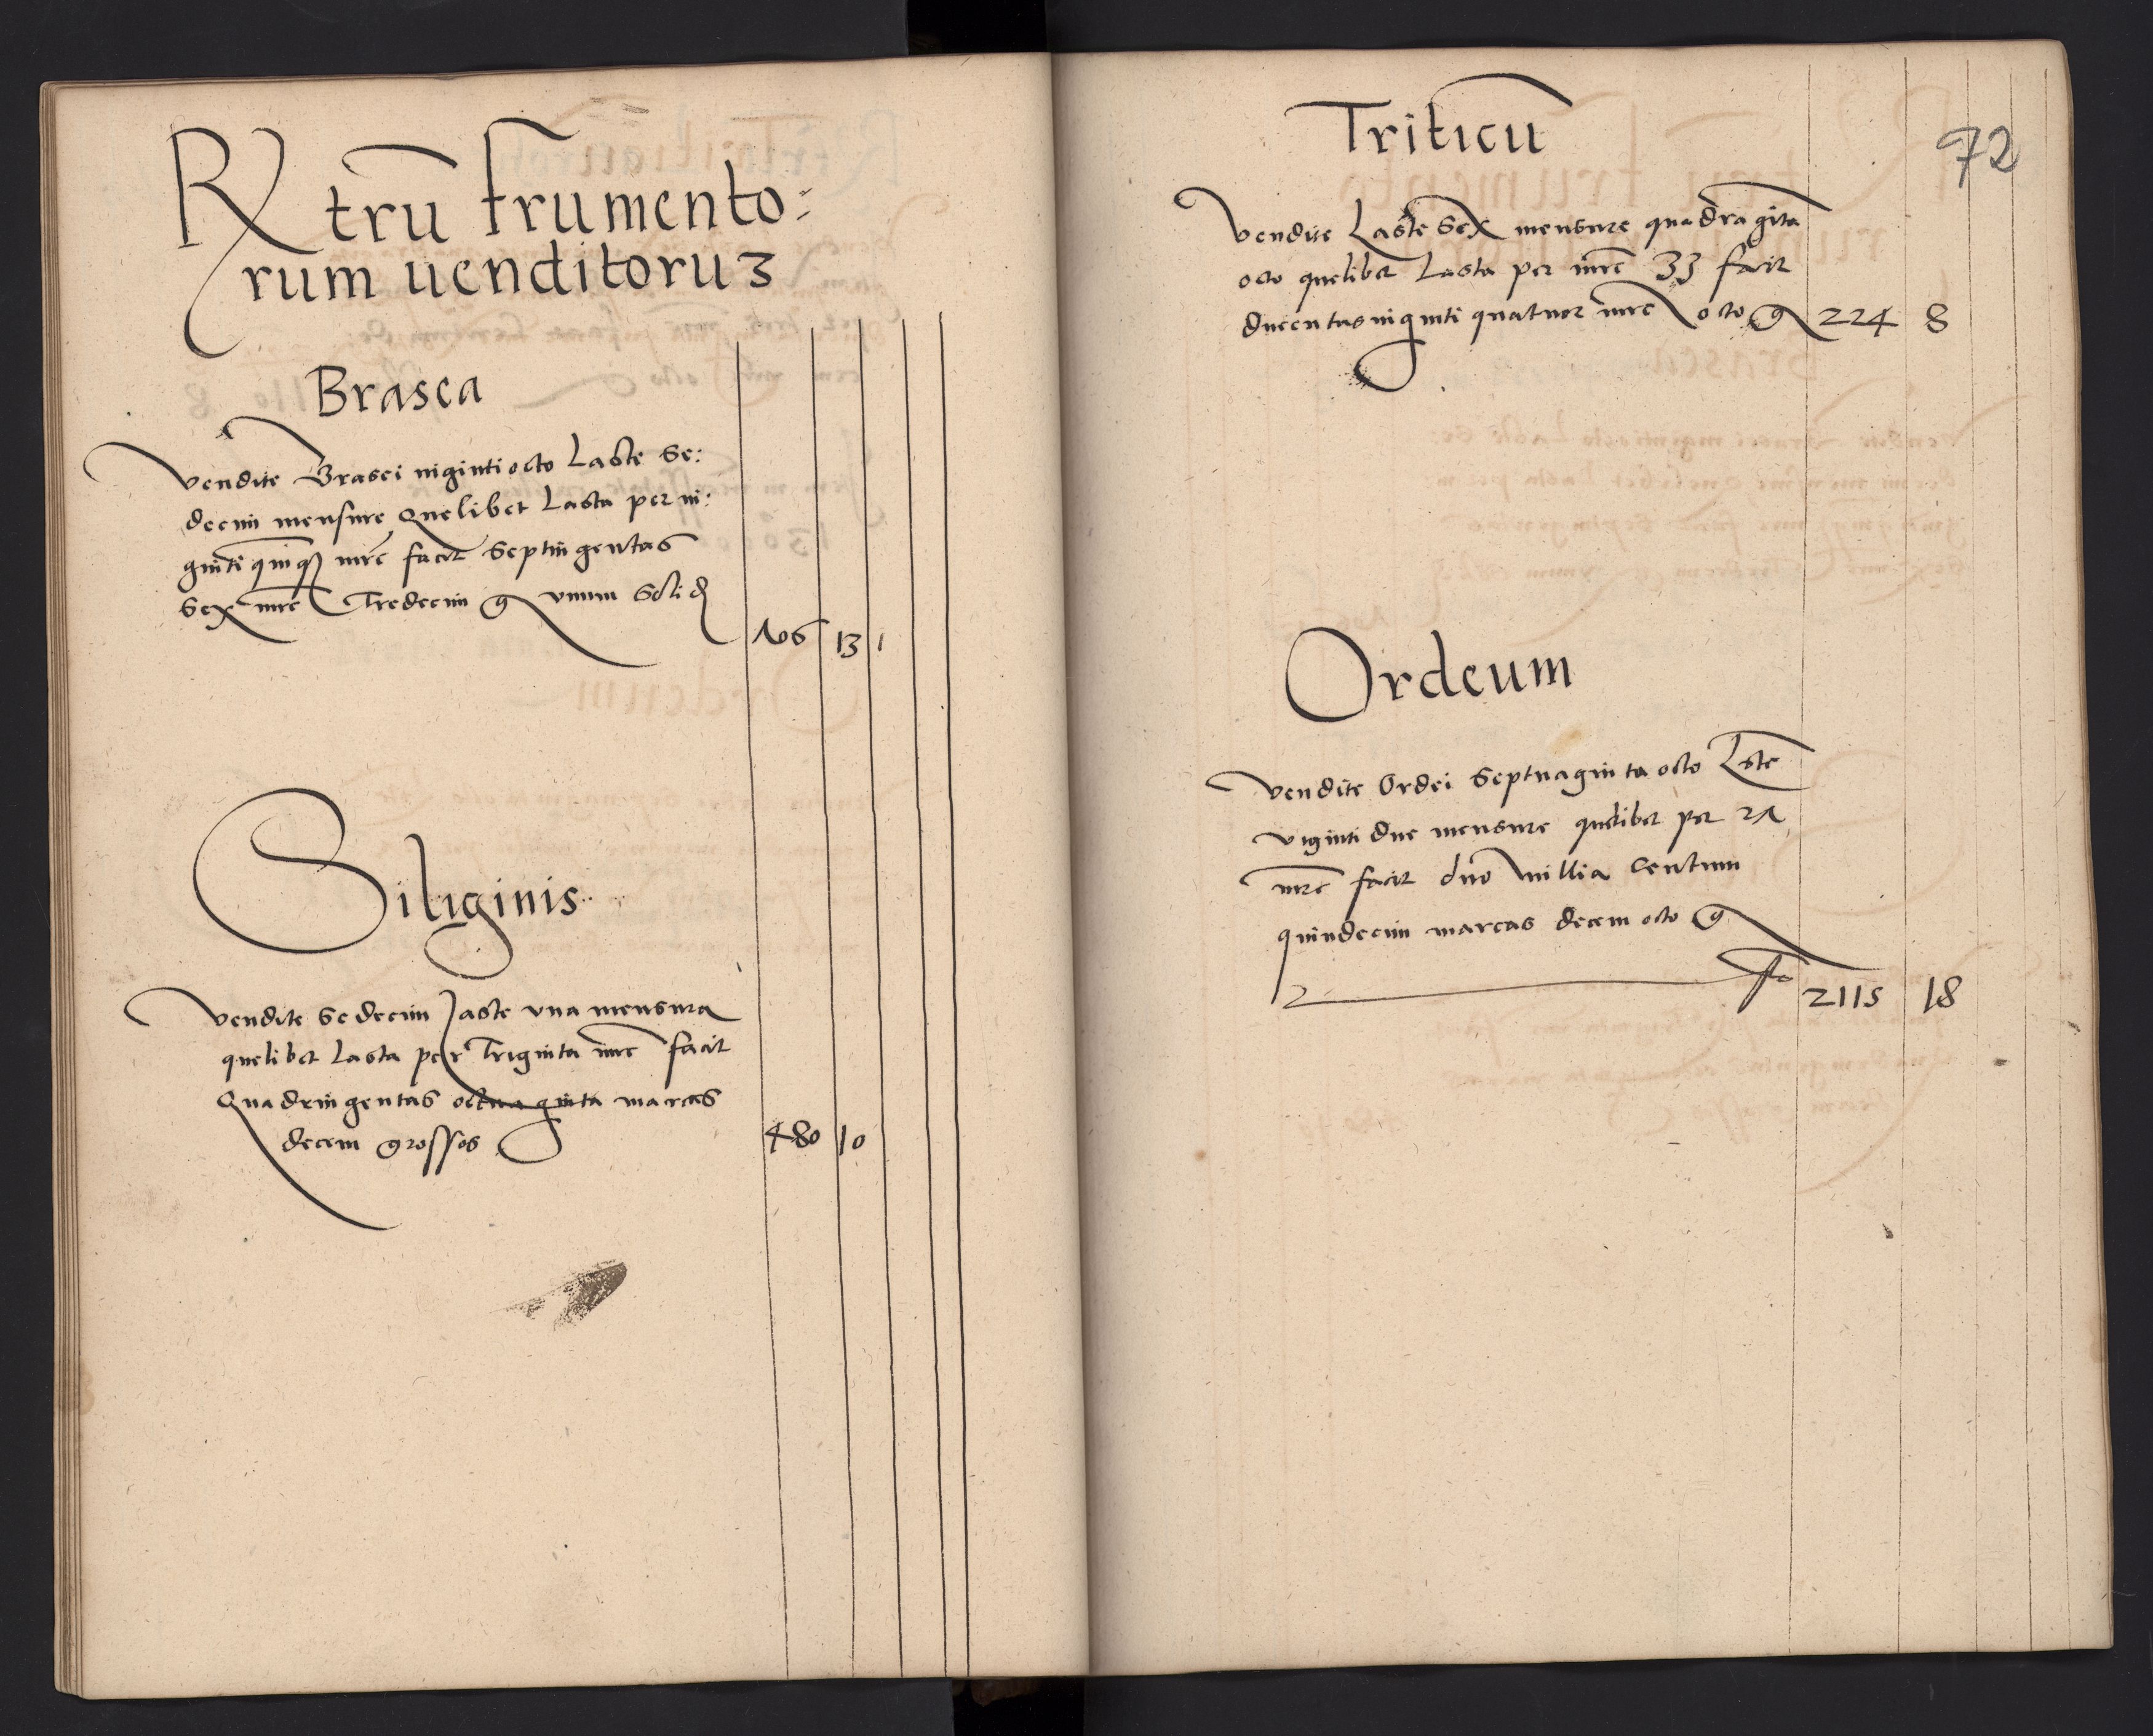 Rx trū frumento:
rum uenditoruꝫ
Brasea
Vendite Brasei uiginti octo Laste se:
decim mensure Quelibet Lasta per ui:
ginti quinqꝫ mrc facit septingentas
sex mrc Tredecim g vnum Solid
706 13 1
Siliginis
Vendite sedecim Laste vna mensura
quelibet Lasta per Triginta mrc facit
Quadringentas octuaginta marcas
decem grossos
480 10
Triticū
92
Vendite Laste Sex mensure quadragīta
octo quelibet Lasta per mrc 33 facit
ducentas uiginti quatuor mrc octo g 224 8
Ordeum
Vendite Ordei Septuaginta octo Lste
viginti due mensure quelibet per 27
mrc facit duo millia Centum
quindecim marcas decem octo g
2115 18